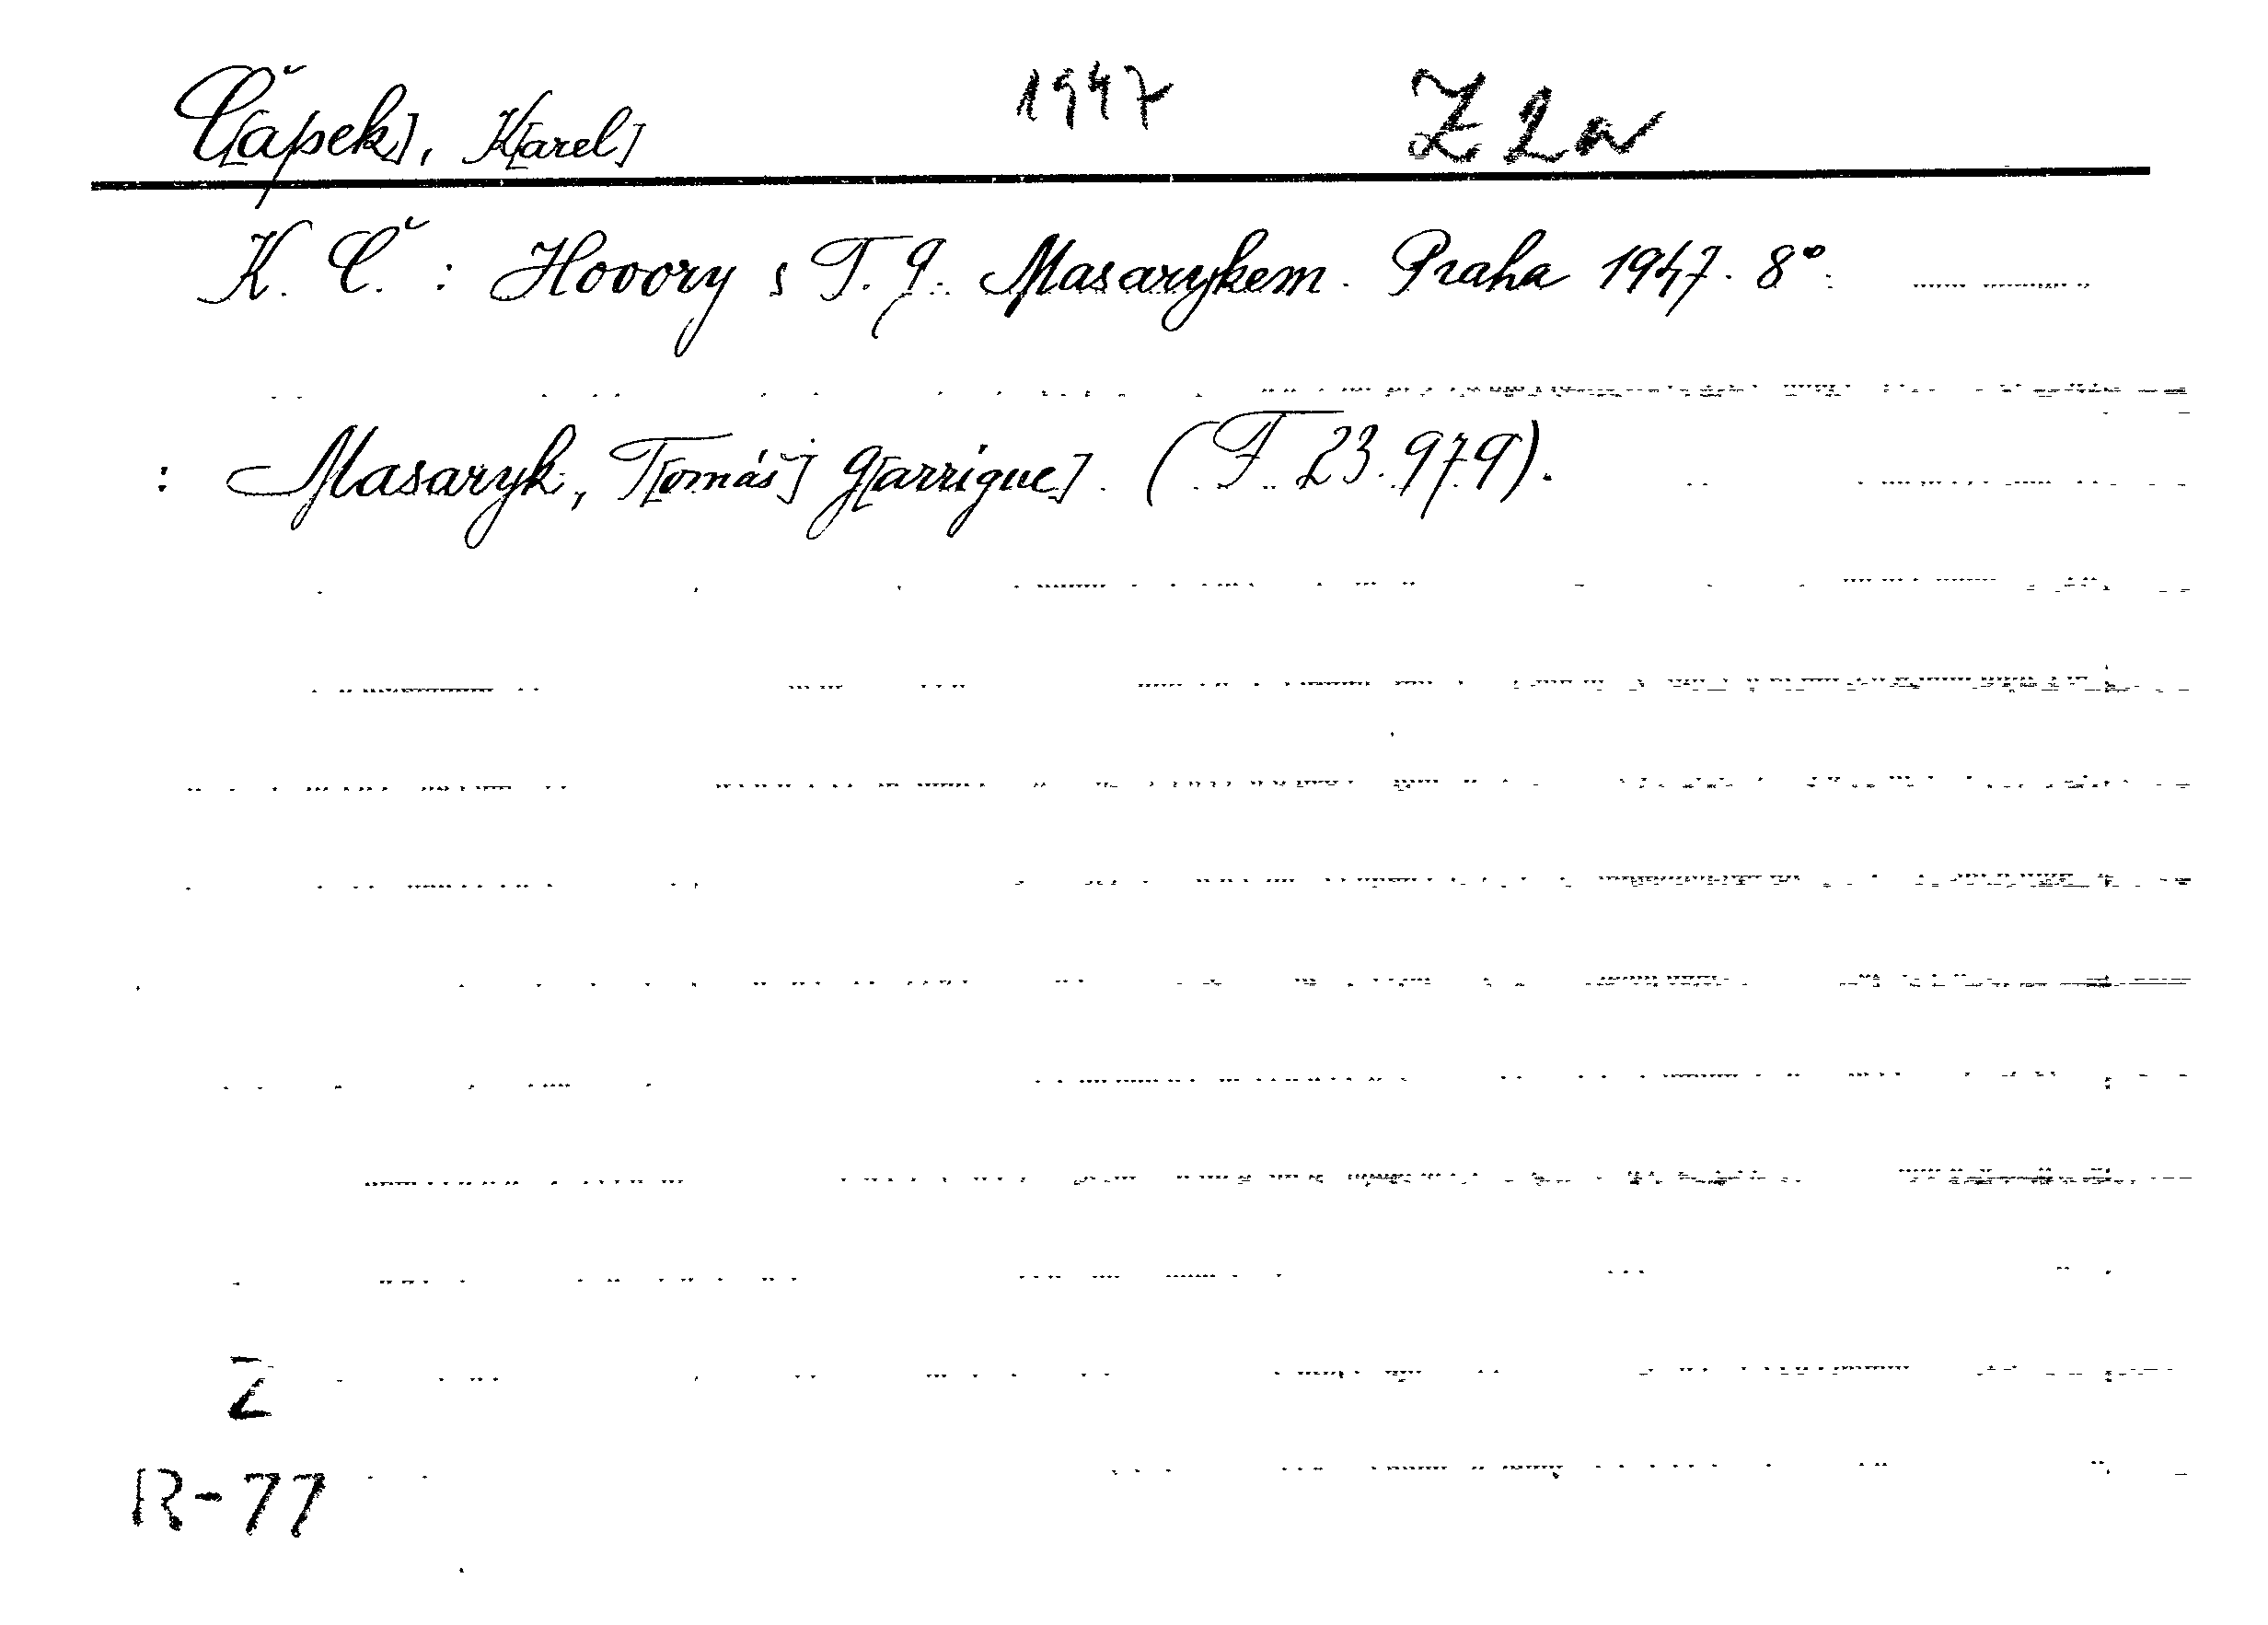 Č[apek], K[arel] 1947 Z 2a
K. Č. : Hovory s T. G. Masarykem. Praha 1947. 8°.
: Masaryk, T[omáš] G[arrigue]. (F 23.979).
Z
R-77